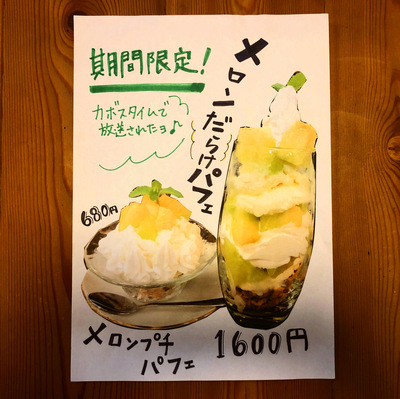 期間限定!
カボスタイムで
放送されたョ♪
メロンだらけパフェ
680円
メロンプチ
パフェ
1600円